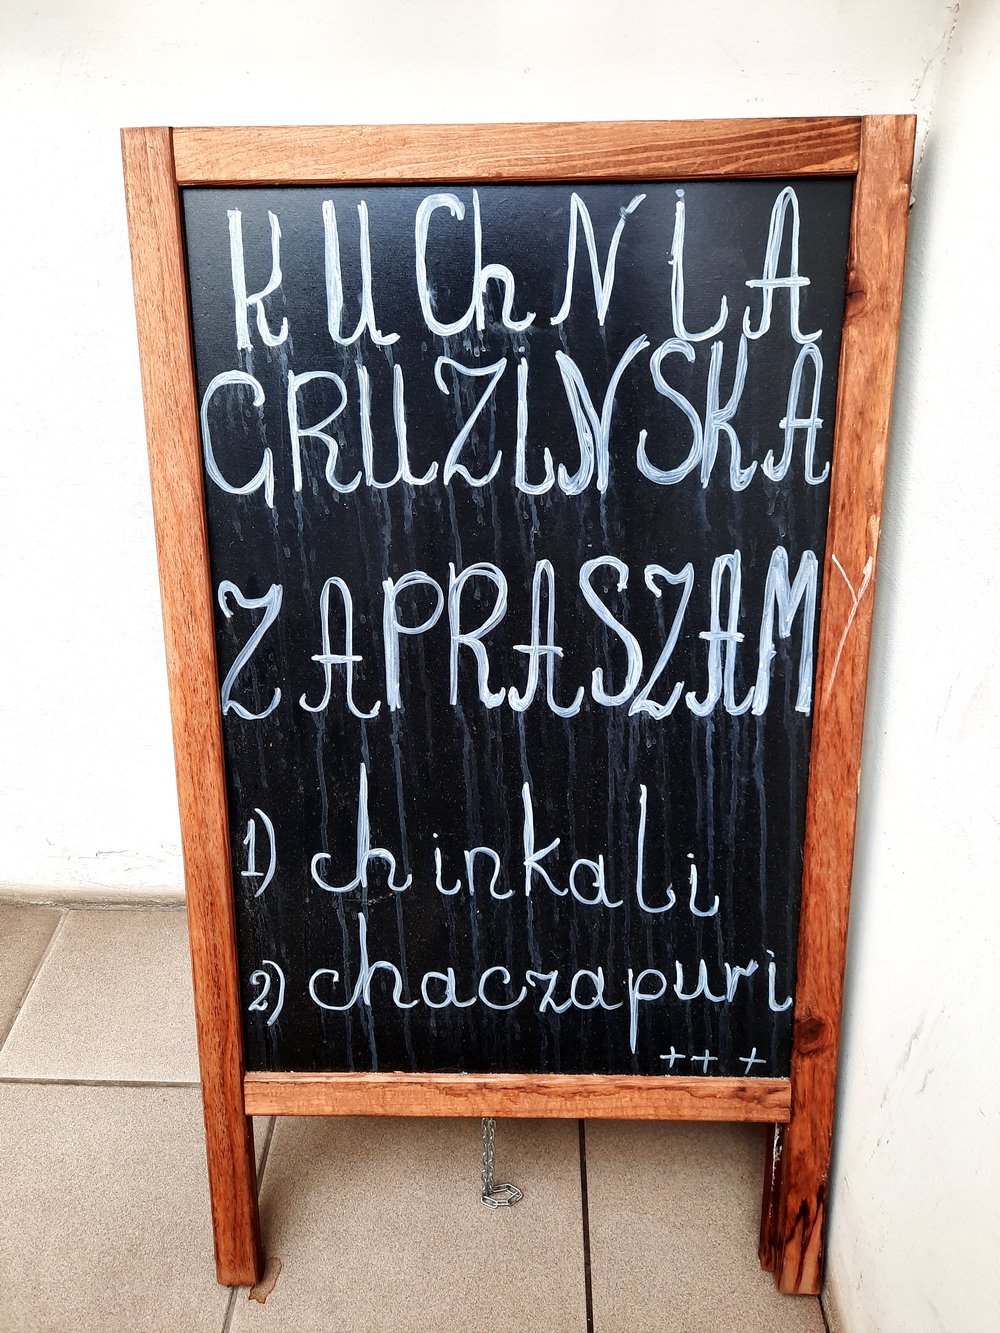 KUChNiA
GRUZINSKA
ZAPRASZAMY
1) chinkali
2) chaczapuri
+++